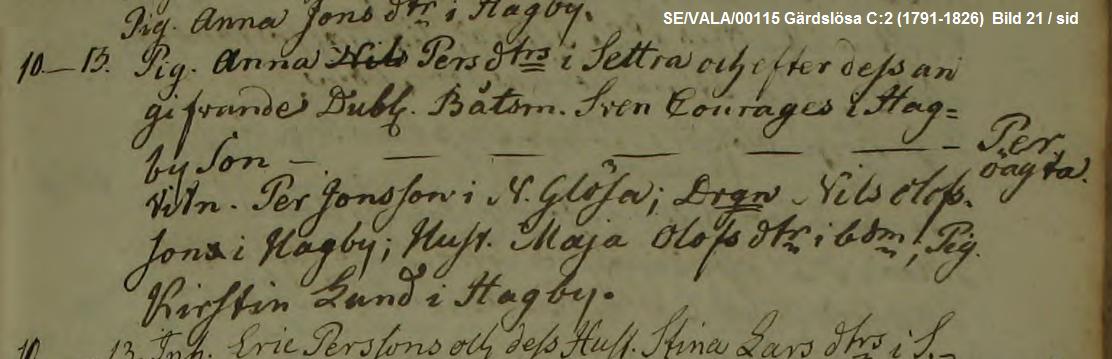 SE/VALA/00115 Gärdslösa C:2 (1791-1826) Bild 21 / sid
Pig. Anna Jons dtr i Hagby.
10.—13. Pig. Anna Nils Pers dtrs i Settra och efter dess an
gifvande Dubl. Båtsm. Sven Courages i Hag=
by Son — — — — — — — Per
oägta.
Vitn. Per Jonsson i N. Glösa; Drgn Nils Olofs.
Sons i Hagby; Hust. Maja Olofs dtr i bdm; Pig.
Kirstin Lund i Hagby.
10 13. Inh. Eric Perssons och dess Hust. Stina Lars dtrs i S